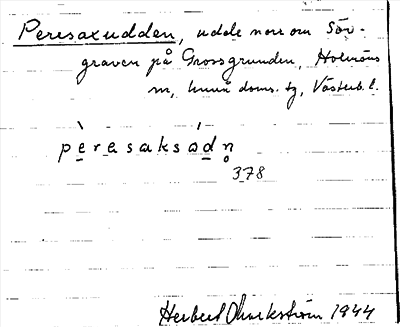 Peresaxudden, udde norr om Sör-
graven på Grossgrunden, Holmöns
sn, Umeå doms. tg, Västerb. l.
pèresaksádn̥
378
Herbert Markström 1944